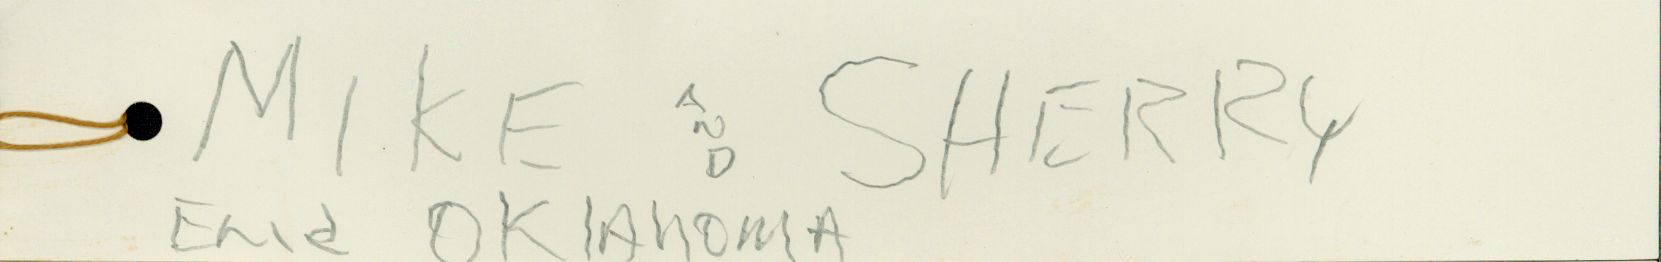 MIKE AND SHERRY
Enid OKlAhOMA